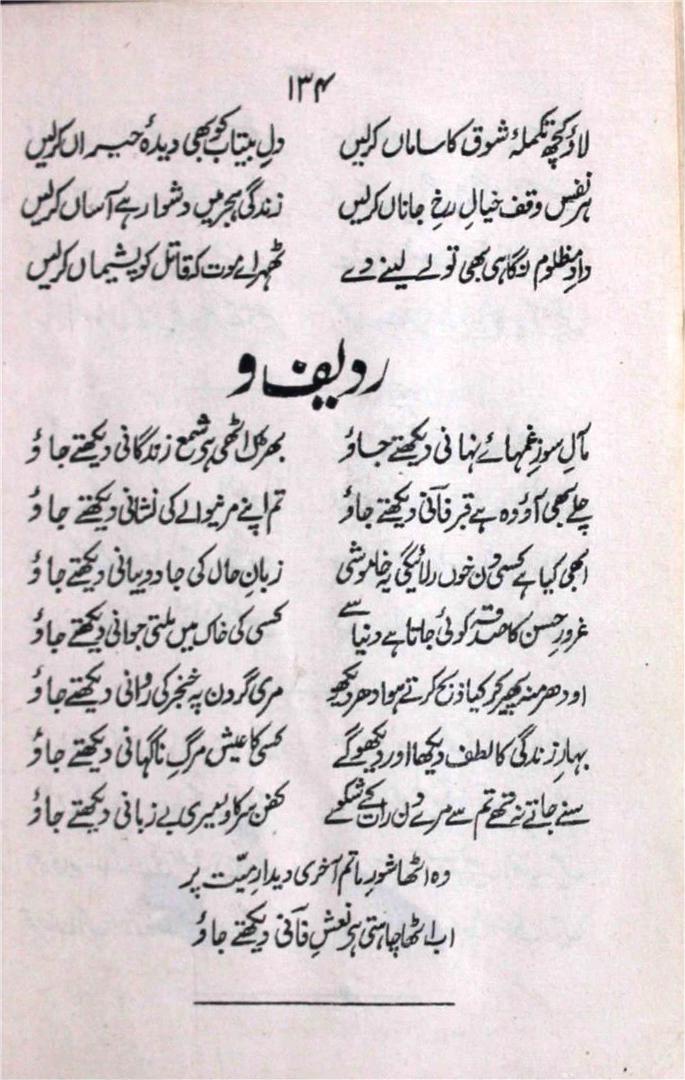 ۱۳۴
لاؤ کچھ تکملۂ شوق کا ساماں کرلیں دلِ بیتاب کو بھی دیدۂ حیراں کرلیں
ہر نفس وقف خیالِ رخِ جاناں کرلیں زندگی ہجر میں دشوار ہے آساں کرلیں
دادِ مظلوم نگاہی بھی تو لے لینے دے ٹھہر اے موت کہ قاتل کو پشیماں کرلیں
ردیف و
مآلِ سوزِ غمہائے نہانی دیکھتے جاؤ بھڑک اٹھی ہی شمع زندگانی دیکھتے جاؤ
چلے بھی آؤ وہ ہے قبر فانی دیکھتے جاؤ تم اپنے مرنیوالے کی نشانی دیکھتے جاؤ
ابھی کیا ہے کسی دن خوں رلائیگی یہ خاموشی زبانِ حال کی جادو بیانی دیکھتے جاؤ
غرورِ حسن کا صدقہ کوئی جاتا ہے دنیا سے کسی کی خاک میں ملتی جوانی دیکھتے جاؤ
اودھر منہ پھیر کر کیا ذبح کرتے ہو ادھر دیکھو مری گردن پہ خنجر کی روانی دیکھتے جاؤ
بہارِ زندگی کا لطف دیکھا اور دیکھوگے کسی کا عیش مرگِ ناگہانی دیکھتے جاؤ
سنے جاتے نہ تھے تم سے مرے دن رات کے شکوے کفن سرکاؤ میری بے زبانی دیکھتے جاؤ
وہ اٹھا شورِ ماتم آخری دیدارِ میّت پر
اب اٹھا چاہتی ہی نعشِ فانی دیکھتے جاؤ